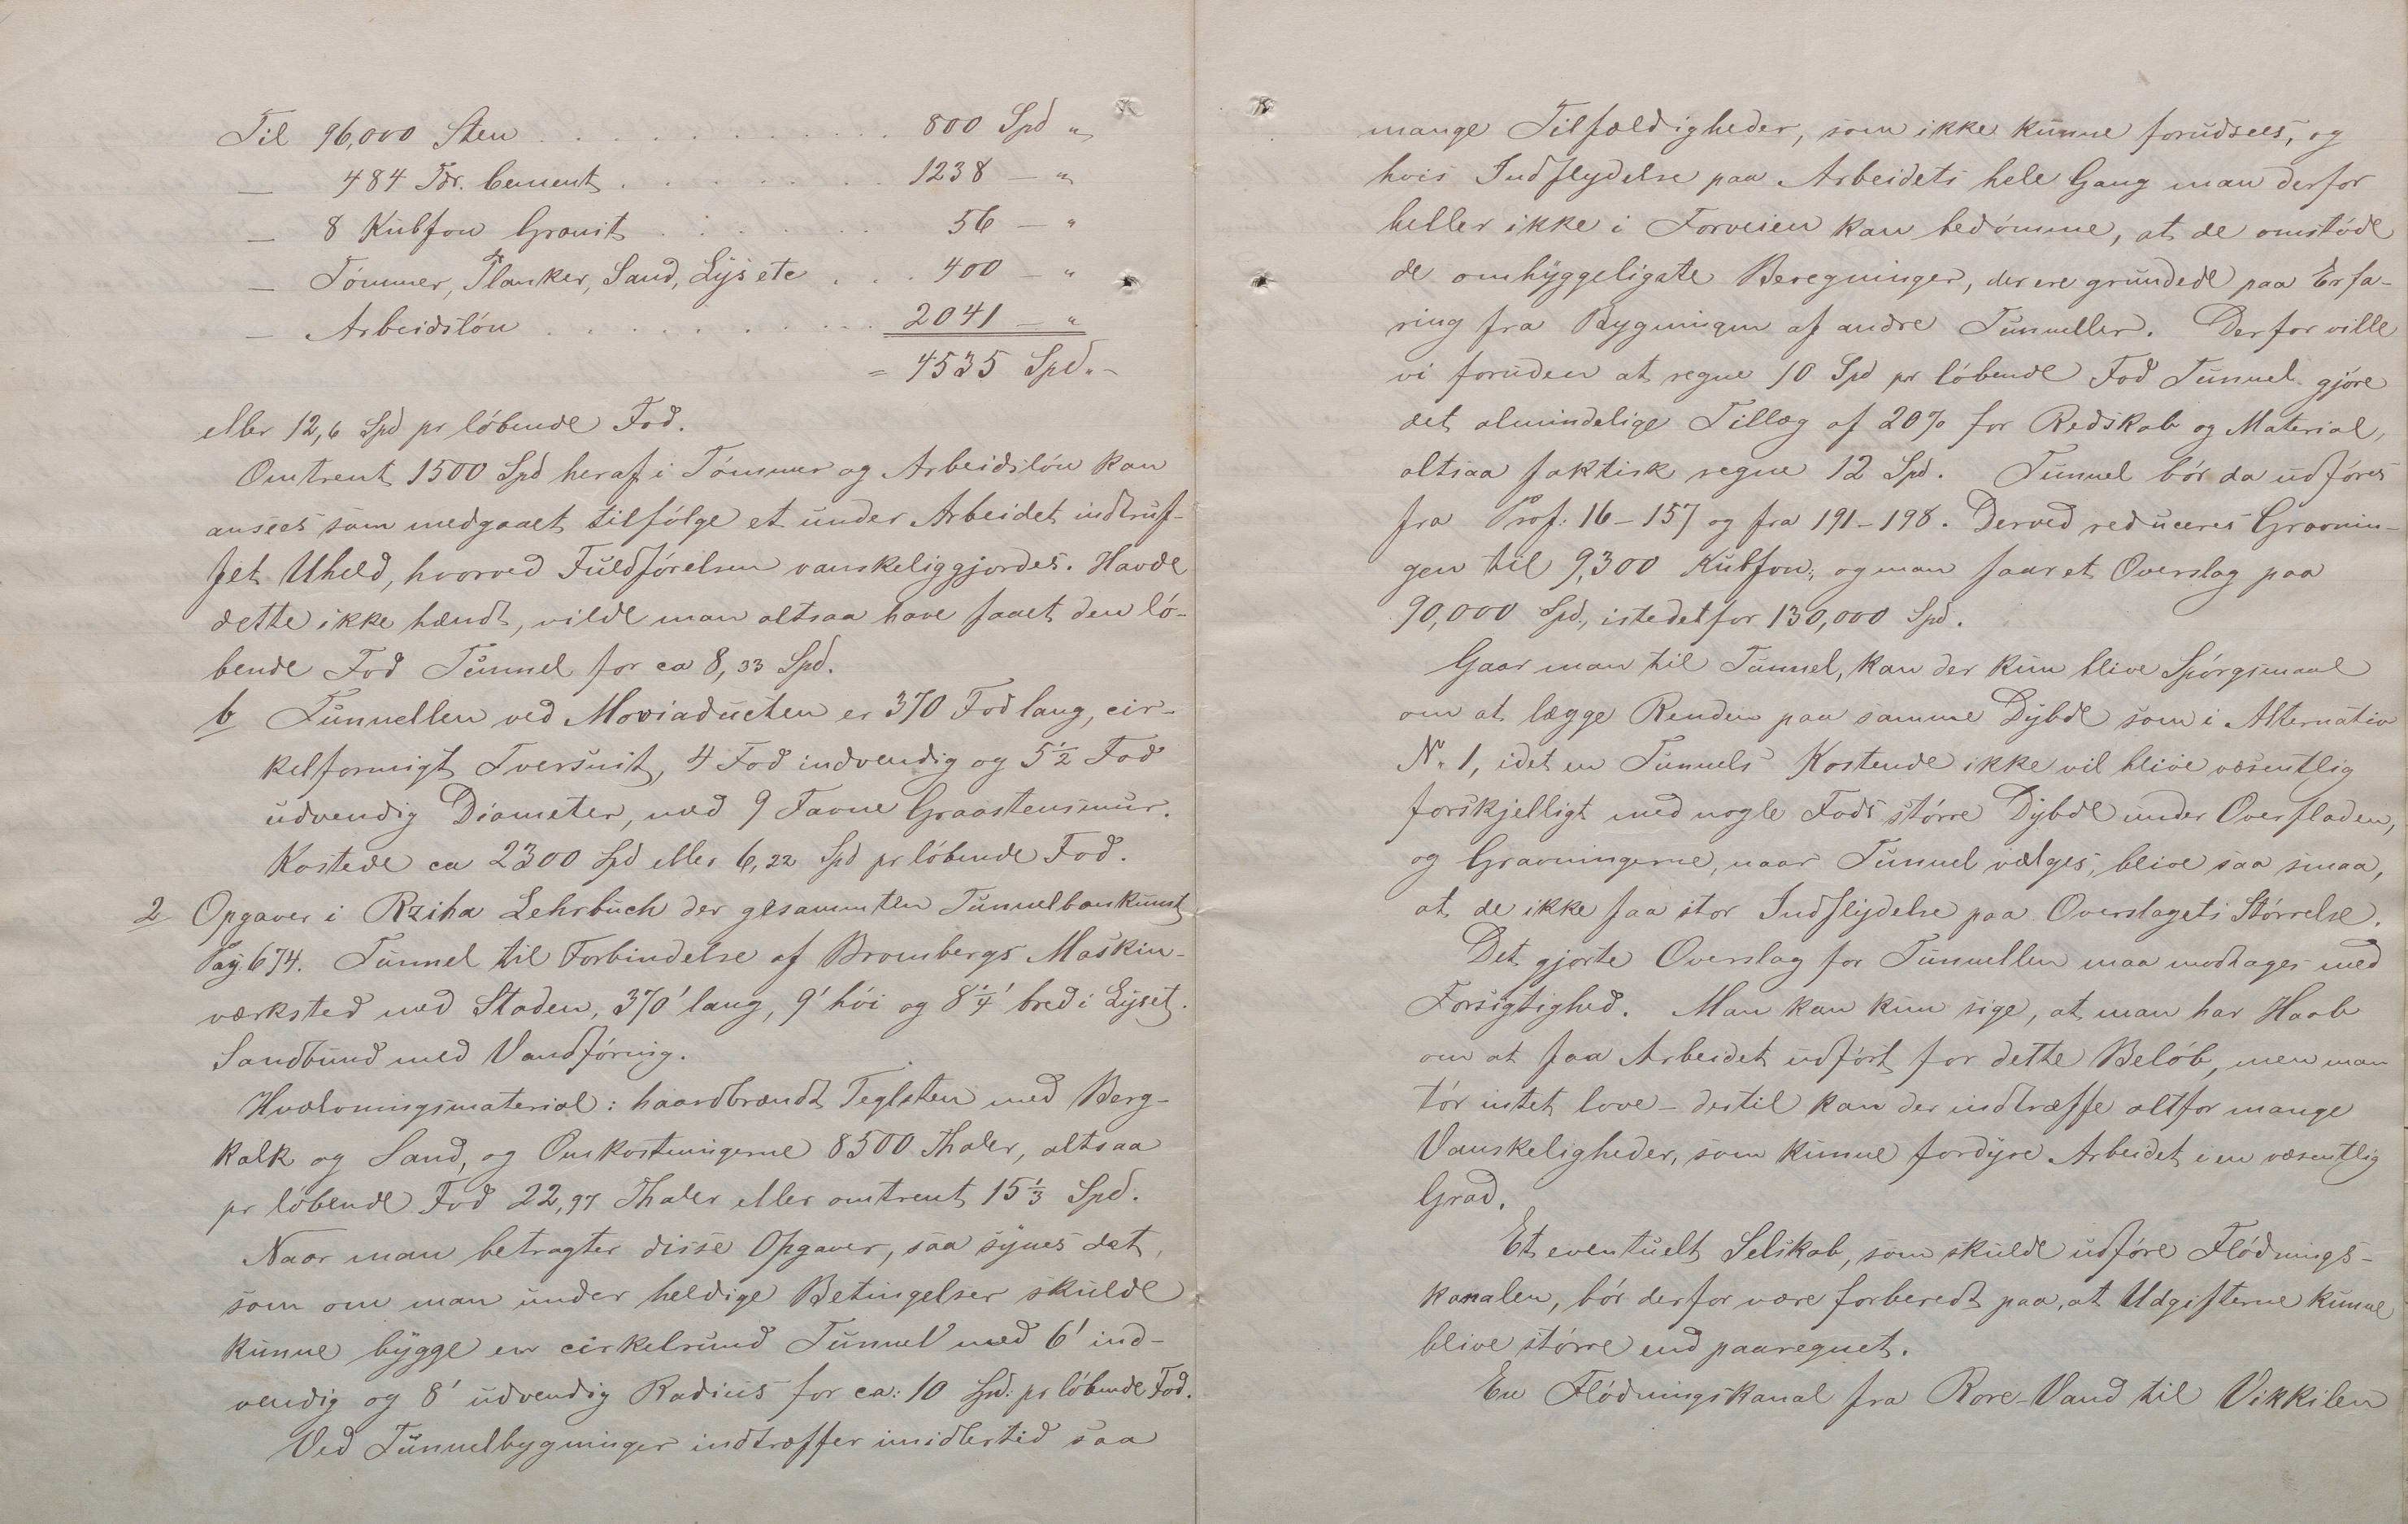 Til 96,000 Sten . . . . . . . . . . . . 800 Spd "
— 484 Tdr. Cement . . . . . . . . 1238 — "
— 8 Kubfvn Granit . . . . . . . 56 — "
— Tömmer, Planker, Sand, Lys etc . . . 400 — "
— Arbeidslön . . . . . . . . . . 2041 — "
= 4535 Spd. "-
eller 12,6 Spd pr löbende Fod.
Omtrent 1500 Spd heraf i Tömmer og Arbeidslön kan
ansees som medgaaet tilfölge et under Arbeidet indtruf-
fet Uheld, hvorved Fuldförelsen vanskeliggjordes. Havde
dette ikke hændt, vilde man altsaa have faaet den lö-
bende Fod Tunnel for ca 8,33 Spd.
b Tunnellen ved Moviaducten er 370 Fod lang, cir-
kelformigt Tversnit, 4 Fod indvendig og 5 1/2 Fod
udvendig Diameter, med 9 Favne Graastensmur.
Kostede ca 2300 Spd eller 6,22 Spd pr löbende Fod.
2 Opgaver i Rziha Lehrbuch der gesammten Tunnelbaukunst
Pag. 674. Tunnel til Forbindelse af Brombergs Maskin-
værksted med Staden, 370' lang, 9' höi og 8 1/4' bred i Lyset.
Sandbund med Vandföring.
Hvælvningsmaterial: haardbrændt Teglsten med Berg-
kalk og Sand, og Omkostningerne 8500 Thaler, altsaa
pr löbende Fod 22,97 Thaler eller omtrent 15 1/3 Spd.
Naar man betragter disse Opgaver, saa synes det,
som om man under heldige Betingelser skulde
kunne bygge en cirkelrund Tunnel med 6' ind-
vendig og 8' udvendig Radius for ca: 10 Spd: pr löbende Fod.
Ved Tunnelbygninger indtræffer imidlertid saa
mange Tilfældigheder, som ikke kunne forudsees, og
hvis Indflydelse paa Arbeidets hele Gang man derfor
heller ikke i Forveien kan bedömme, at de omstöde
de omhyggeligste Beregninger, der ere grundede paa Erfa-
ring fra Bygningen af andre Tunneller. Derfor ville
vi foruden at regne 10 Spd pr löbende Fod Tunnel gjöre
det almindelige Tillæg af 20% for Redskab og Material,
altsaa faktisk regne 12 Spd. Tunnel bör da udföres
fra Prof: 16 - 157 og fra 191 - 198. Derved reduceres Gravnin-
gen til 9,300 Kubfvn:, og man faar et Overslag paa
90,000 Spd, istedetfor 130,000 Spd.
Gaar man til Tunnel, kan der kun blive Spörgsmaal
om at lægge Renden paa samme Dybde som i Alternativ
No. 1, idet en Tunnels Kostende ikke vil blive væsentlig
forskjelligt med nogle Fods större Dybde under Overfladen,
og Gravningerne, naar Tunnel vælges, blive saa smaa,
at de ikke faa stor Indflydelse paa Overslagets Störrelse.
Det gjorte Overslag for Tunnellen maa modtages med
Forsigtighed. Man kan kun sige, at man har Haab
om at faa Arbeidet udfört for dette Belöb, men man
tör intet love - dertil kan der indtræffe altfor mange
Vanskeligheder, som kunne fordyre Arbeidet i en væsentlig
Grad.
Et eventuelt Selskab, som skulde udföre Flödnings-
kanalen, bör derfor være forberedt paa, at Udgifterne kunne
blive större end paaregnet.
En Flödningskanal fra Rore-Vand til Vikkilen